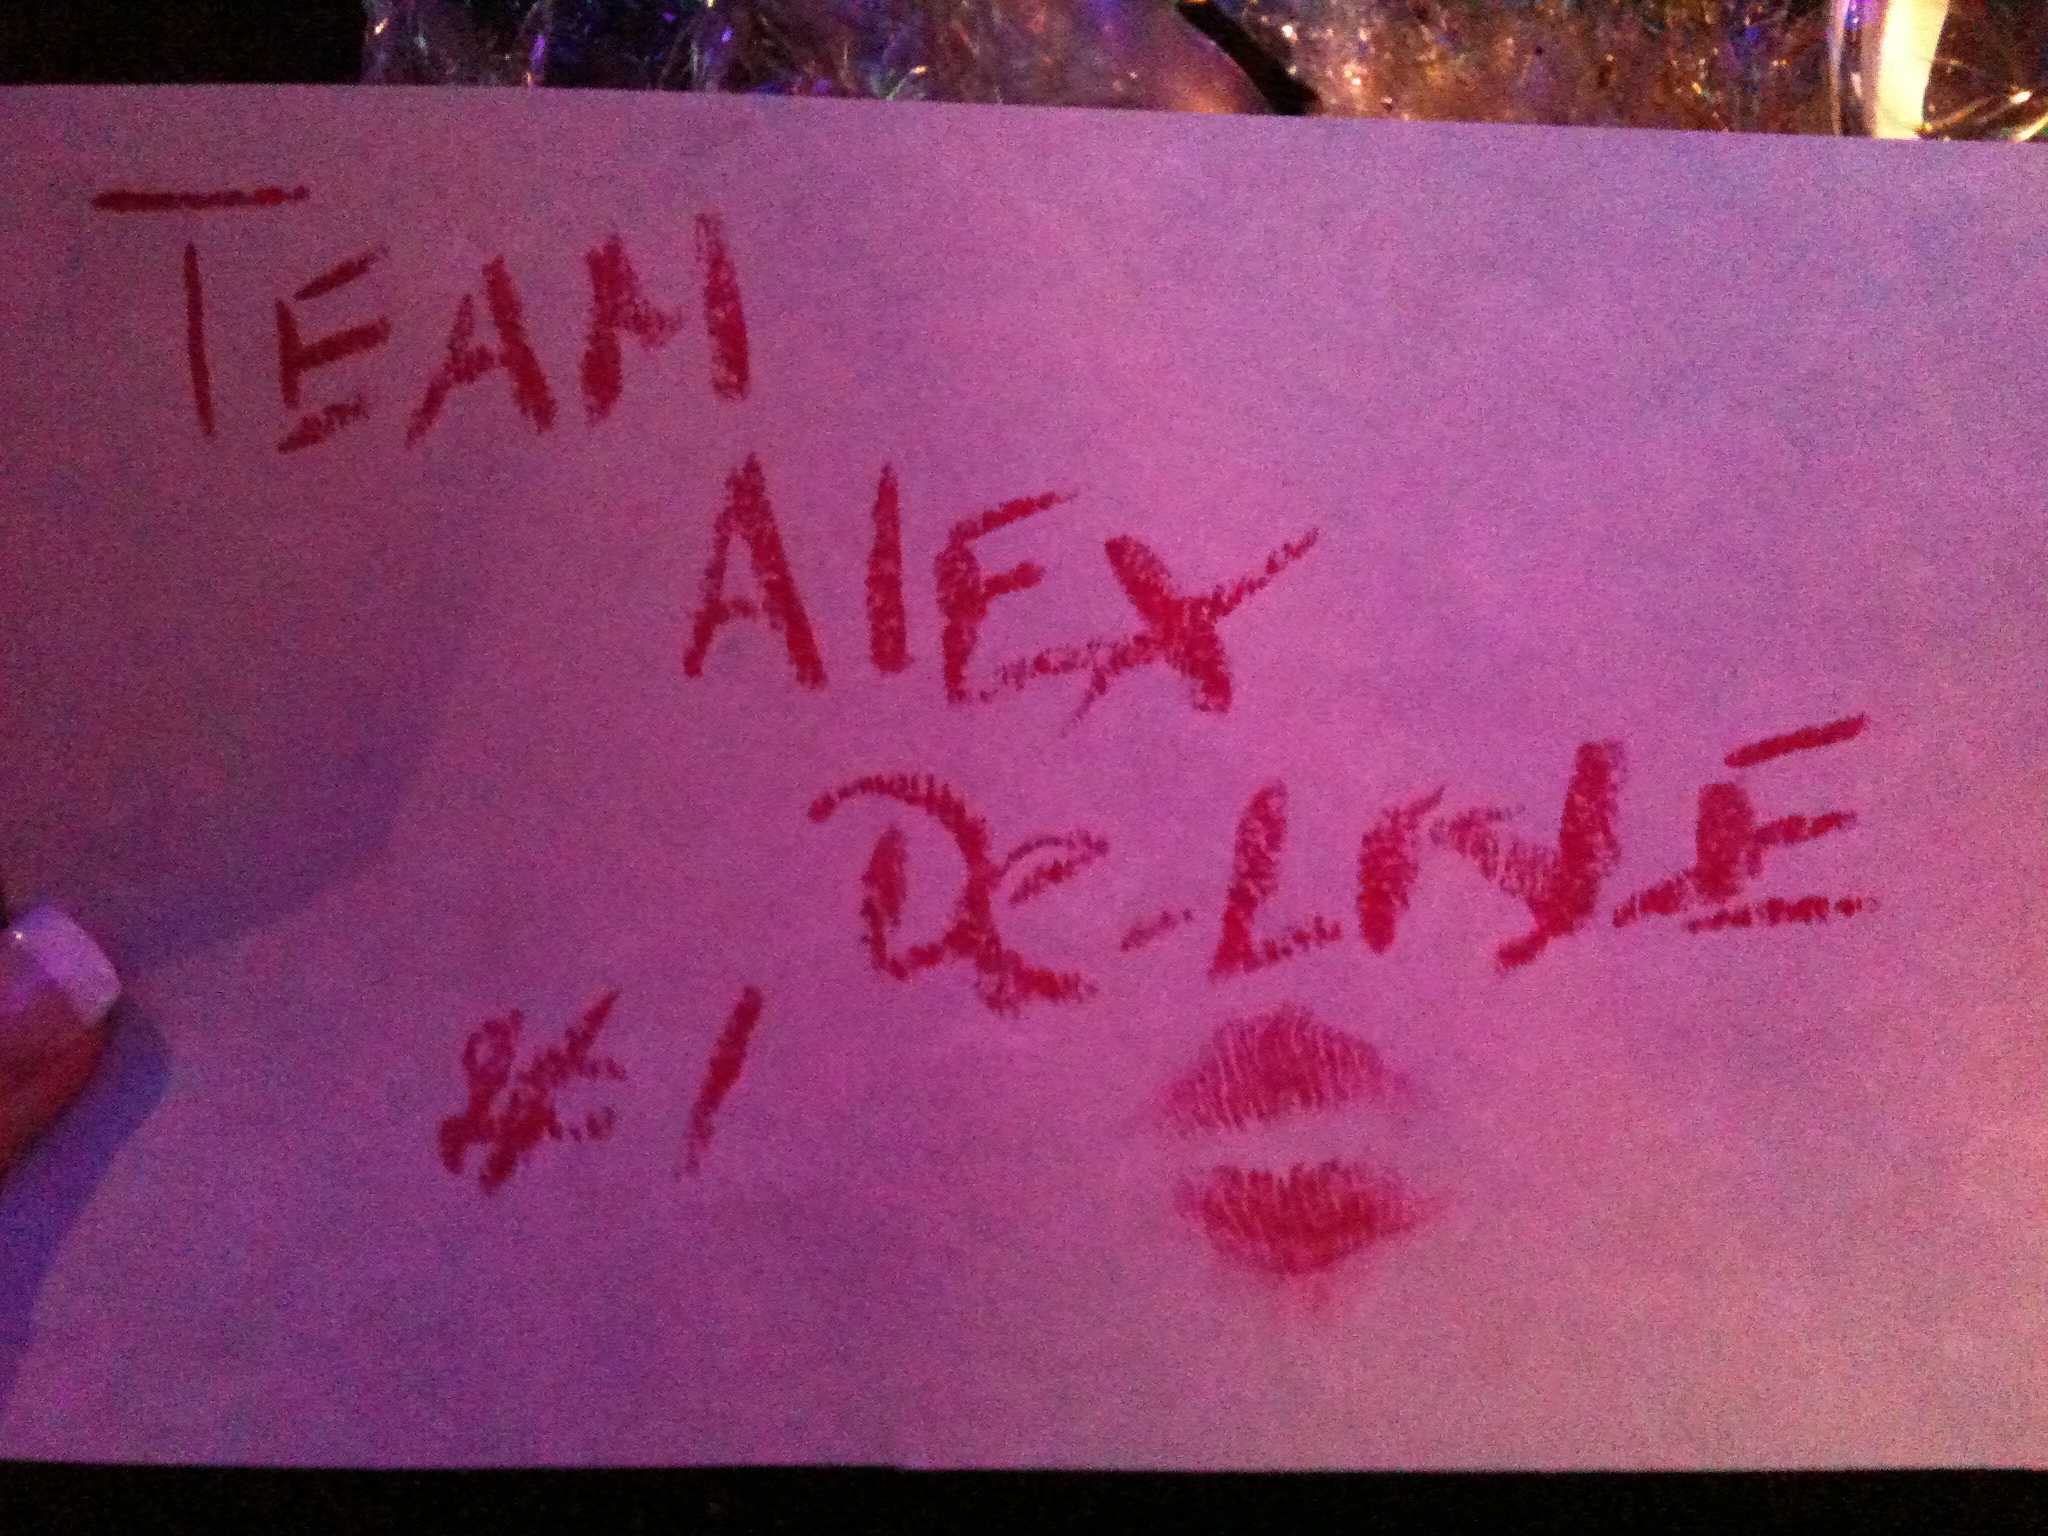 TEAM
AlEX
DE-LNYE
#1